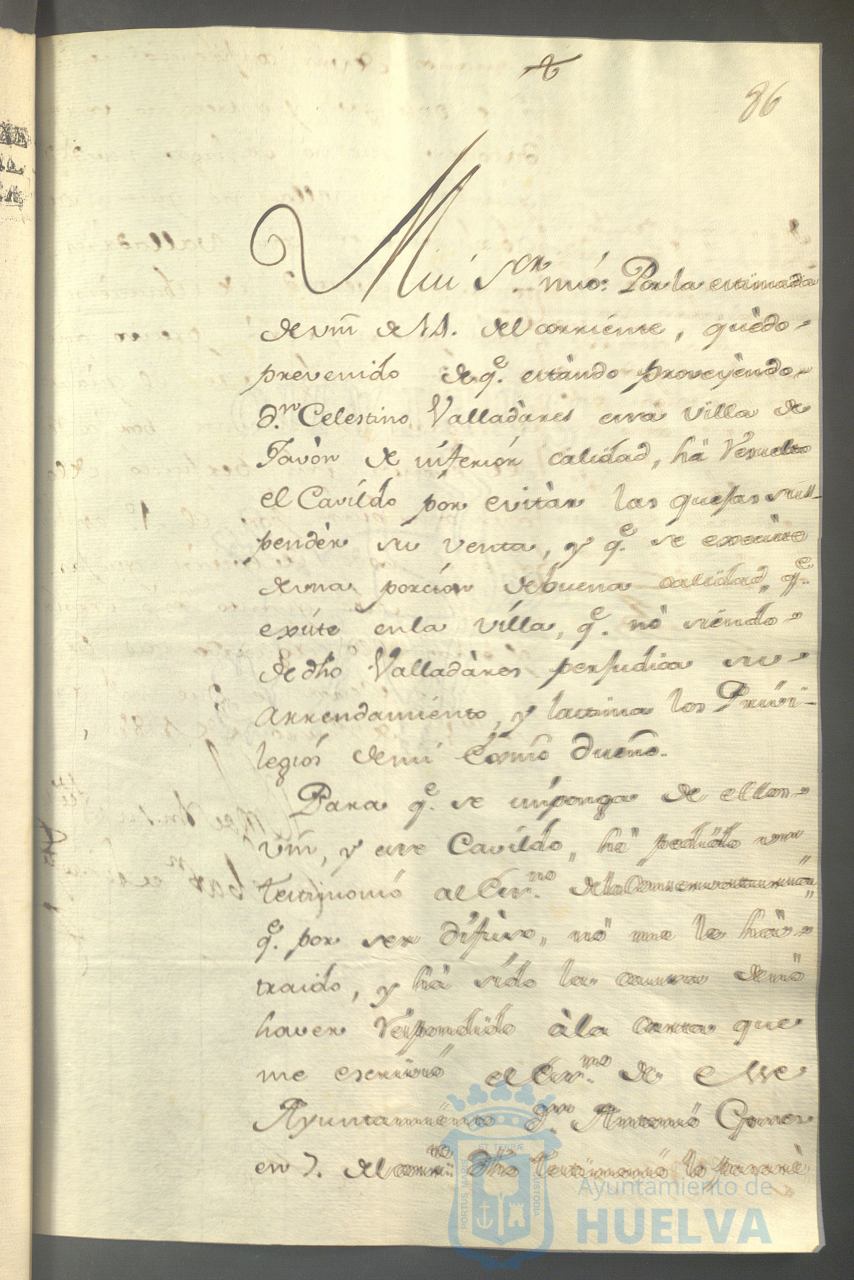 86
Mui Sor. mio: Por la estimada
de vm de 14. del corriente, quedo
prevenido de qe. estando proveyendo
dn. Celestino Valladares essa villa de
Javòn de inferior calidad, ha resuelto
el Cavildo por evitar las quejas sus-
pender su venta, y qe. se execute
de una porcion de buena calidad, qe.
existe en la villa, qe. no siendo
de dho Valladares perjudica su
Arrendamiento, y lastima los Privi-
legios de mi Exmo Dueño.
Para qe. se imponga de ellos
vm, y esse Cavildo, he pedido un
testimonio al Esno. de la
qe. por ser difuso, no me le ha
traido, y ha sido la causa de no
haver respondido à la carta que
me escrivio el Esno. de esse
Ayuntamiento dn. Antonio Gomez
en 7. del corrte. Dho testimonio lo passarè
PORTUS MARIS ET TERRAE CUSTODIA
Ayuntamiento de
HUELVA